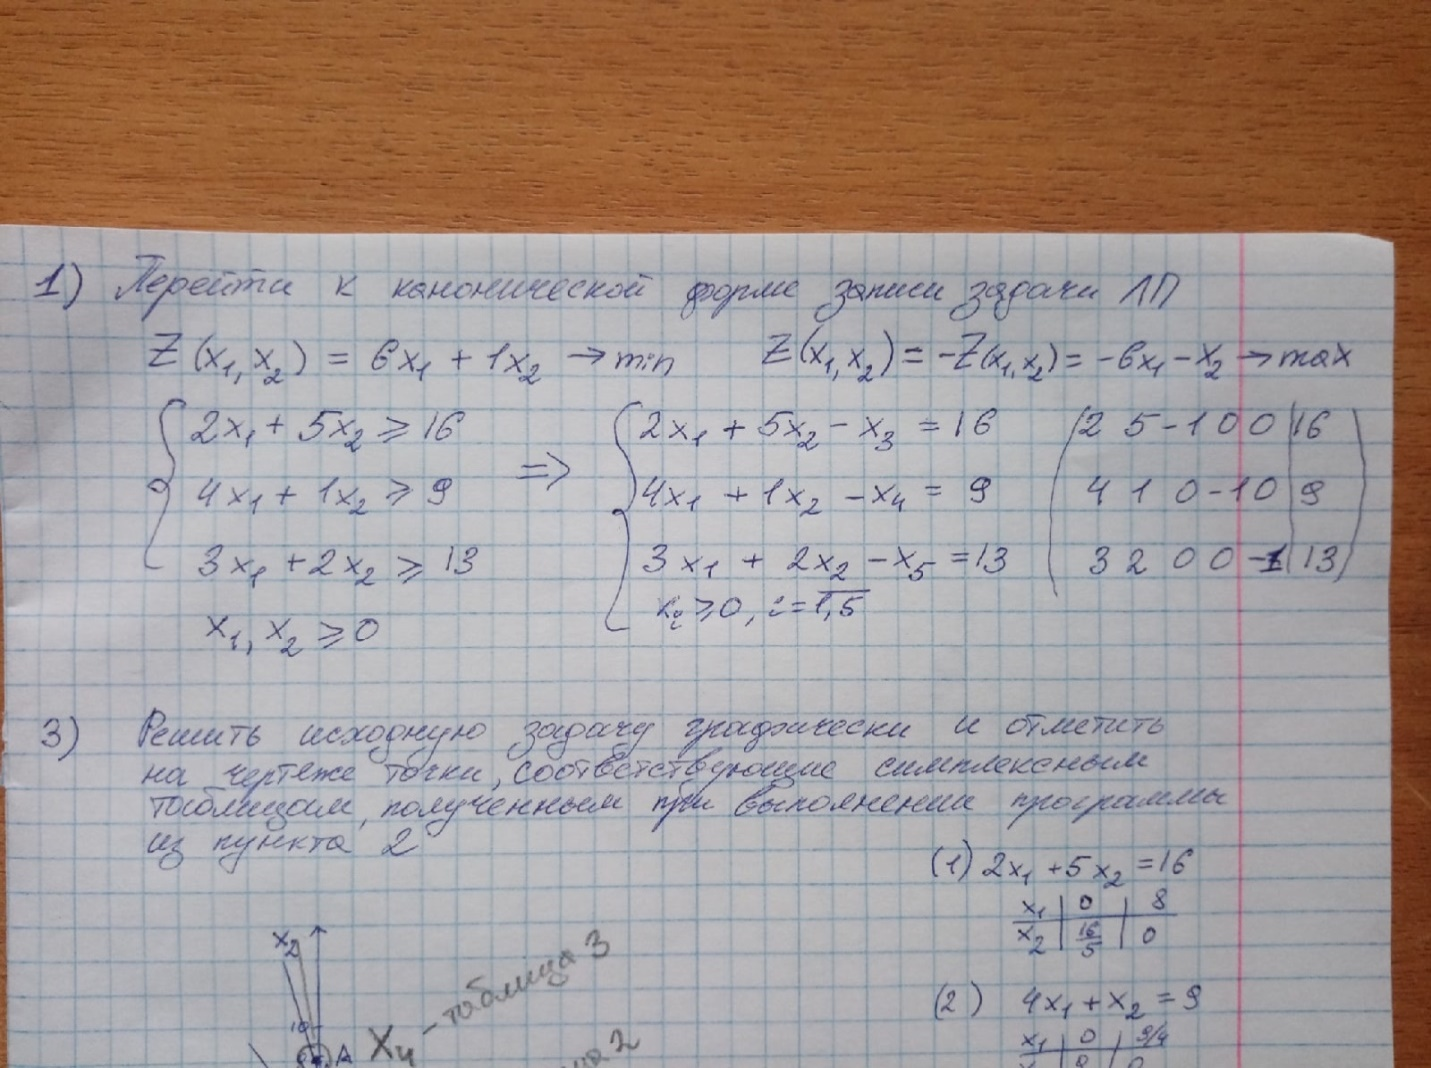 1) Перейти к канонической форме записи задачи ЛП
Z(x₁, x₂) = 6x₁ + 1x₂ → min    Z(x₁, x₂) = -Z(x₁, x₂) = -6x₁ - x₂ → max
2x₁ + 5x₂ ≥ 16 ⇒ 2x₁ + 5x₂ - x₃ = 16    2 5 -1 0 0 | 16
4x₁ + 1x₂ ≥ 9    4x₁ + 1x₂ - x₄ = 9    4 1 0 -1 0 | 9
3x₁ + 2x₂ ≥ 13    3x₁ + 2x₂ - x₅ = 13    3 2 0 0 -1 | 13
x₁, x₂ ≥ 0    xᵢ ≥ 0, i = 1,5
3) Решить исходную задачу графически и отметить
на чертеже точки, соответствующие симплексным
таблицам, полученным при выполнении программы
из пункта 2
(1) 2x₁ + 5x₂ = 16
x₁ | 0 | 8
x₂ | 16/5 | 0
(2) 4x₁ + x₂ = 9
x₁ | 0 | 9/4
x₂
10
A
X₄ - таблица 3
2